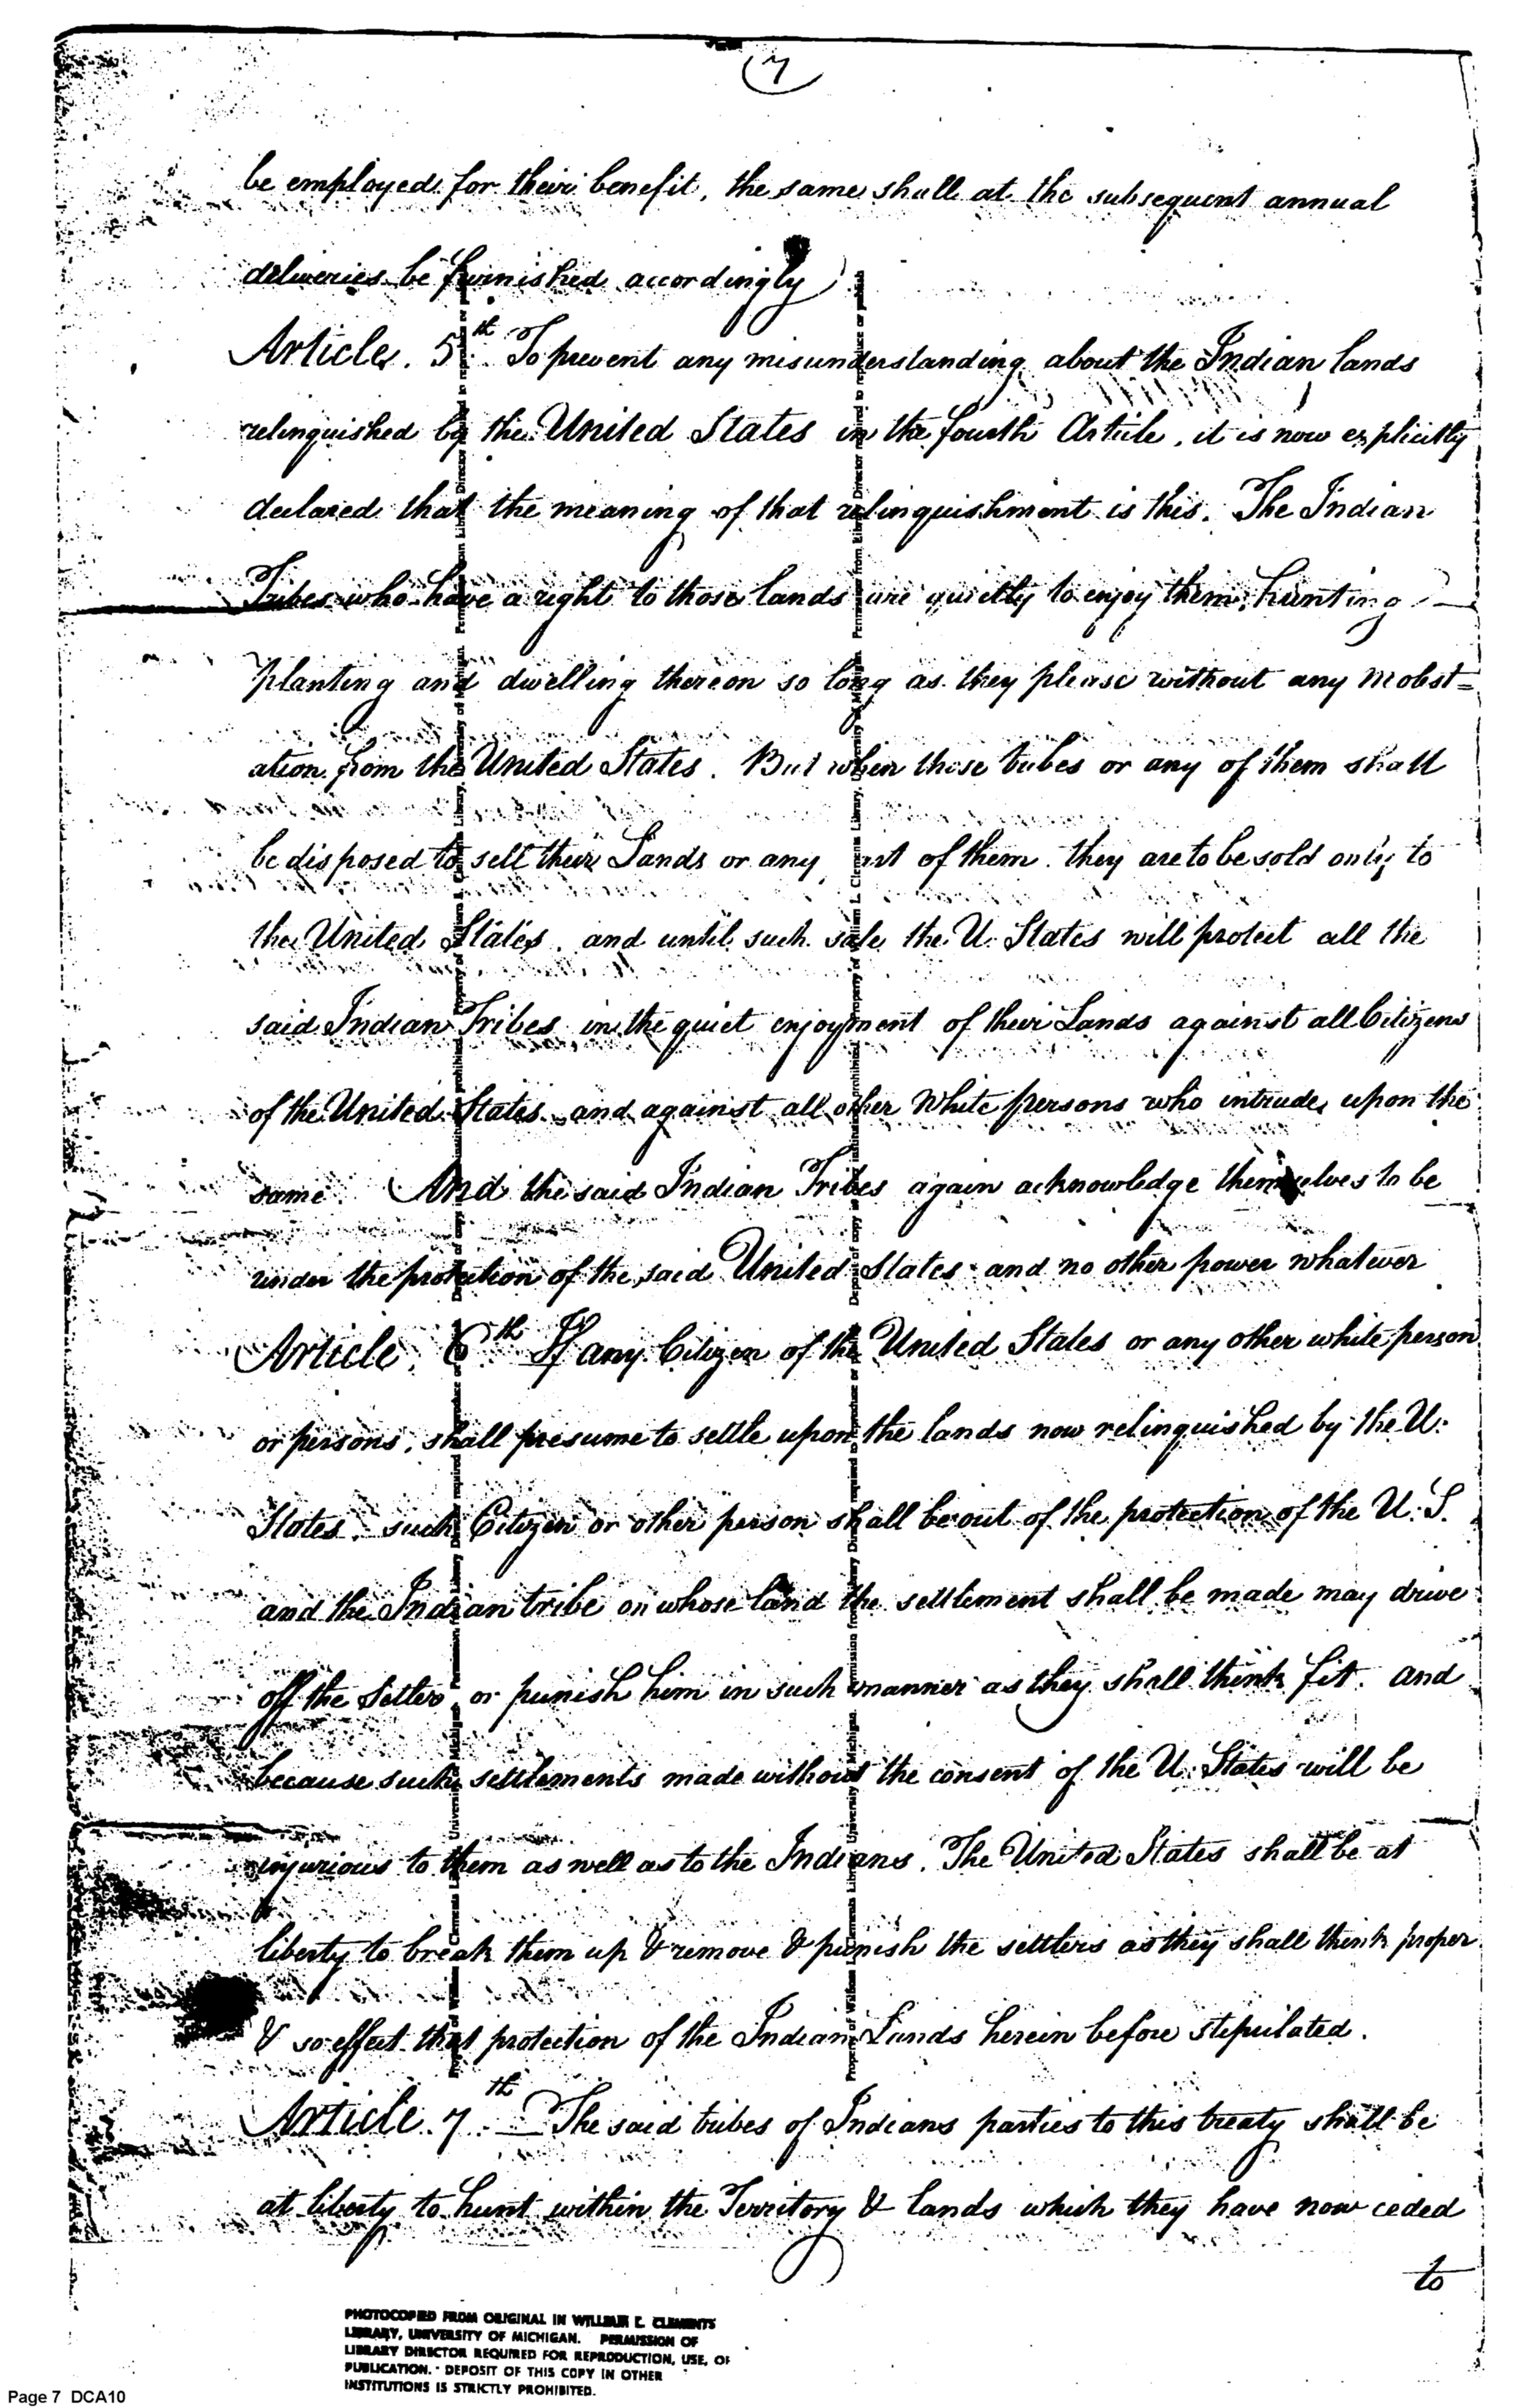 7
be employed for their benefit, the same shall at the subsequent annual
deliveries be furnished accordingly
Article. 5th. To prevent any misunderstanding about the Indian lands
relinquished by the United States in the fourth Article, it is now explicitly
declared that the meaning of that relinquishment is this. The Indian
Tribes who have a right to those lands are quietly to enjoy them, hunting
planting and dwelling thereon so long as they please without any molest=
ation from the United States. But when those tribes or any of them shall
be disposed to sell their Lands or any of them. they are to be sold only to
the United States. and until such sale the U. States will protect all the
said Indian Tribes in the quiet enjoyment of their Lands against all Citizens
of the United States and against all other White persons who intrude upon the
same. And the said Indian Tribes again acknowledge themselves to be
under the protection of the said United States and no other power whatever
Article. 6th If any Citizen of the United States or any other white person
or persons, shall presume to settle upon the lands now relinquished by the U.
States. such Citizen or other person shall be out of the protection of the U. S.
and the Indian tribe on whose land the settlement shall be made may drive
off the Setler, or punish him in such manner as they shall think fit. and
because such settlements made without the consent of the U. States will be
injurious to them as well as to the Indians. The United States shall be at
liberty to break them up & remove & punish the settlers as they shall think proper
& so effect that protection of the Indian Lands herein before stipulated.
Article. 7.th The said tribes of Indians parties to this treaty shall be
at liberty to hunt within the Territory & lands which they have now ceded
to
PHOTOCOPIED FROM ORIGINAL IN WILLIAM L. CLEMENTS
LIBRARY, UNIVERSITY OF MICHIGAN. PERMISSION OF
LIBRARY DIRECTOR REQUIRED FOR REPRODUCTION, USE, OR
PUBLICATION. DEPOSIT OF THIS COPY IN OTHER
INSTITUTIONS IS STRICTLY PROHIBITED.
Page 7 DCA10